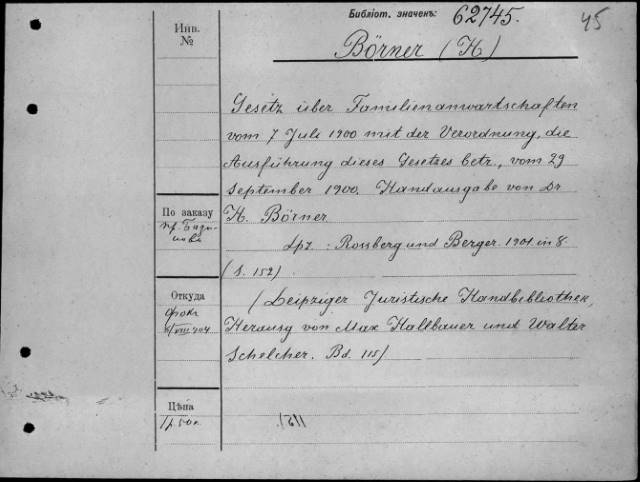 Библіот. значенъ: 62745.
45
Инв.
№
Börner (H)
Gesetz über Familienanwartschaften
vom 7 Juli 1900 mit der Verordnung, die
Ausführung dieses Gesetzes betr., vom 29
September 1900. Handausgabe von Dr
H. Börner
По заказу
пр.
Lpz. : Rossberg und Berger. 1901. in 8.
(S. 152)
Откуда
(Leipziger Juristische Handbibliothek,
Herausg von Max Hallbauer und Walter
Schelcher. Bd. 115)
Цѣна
1р. 50к